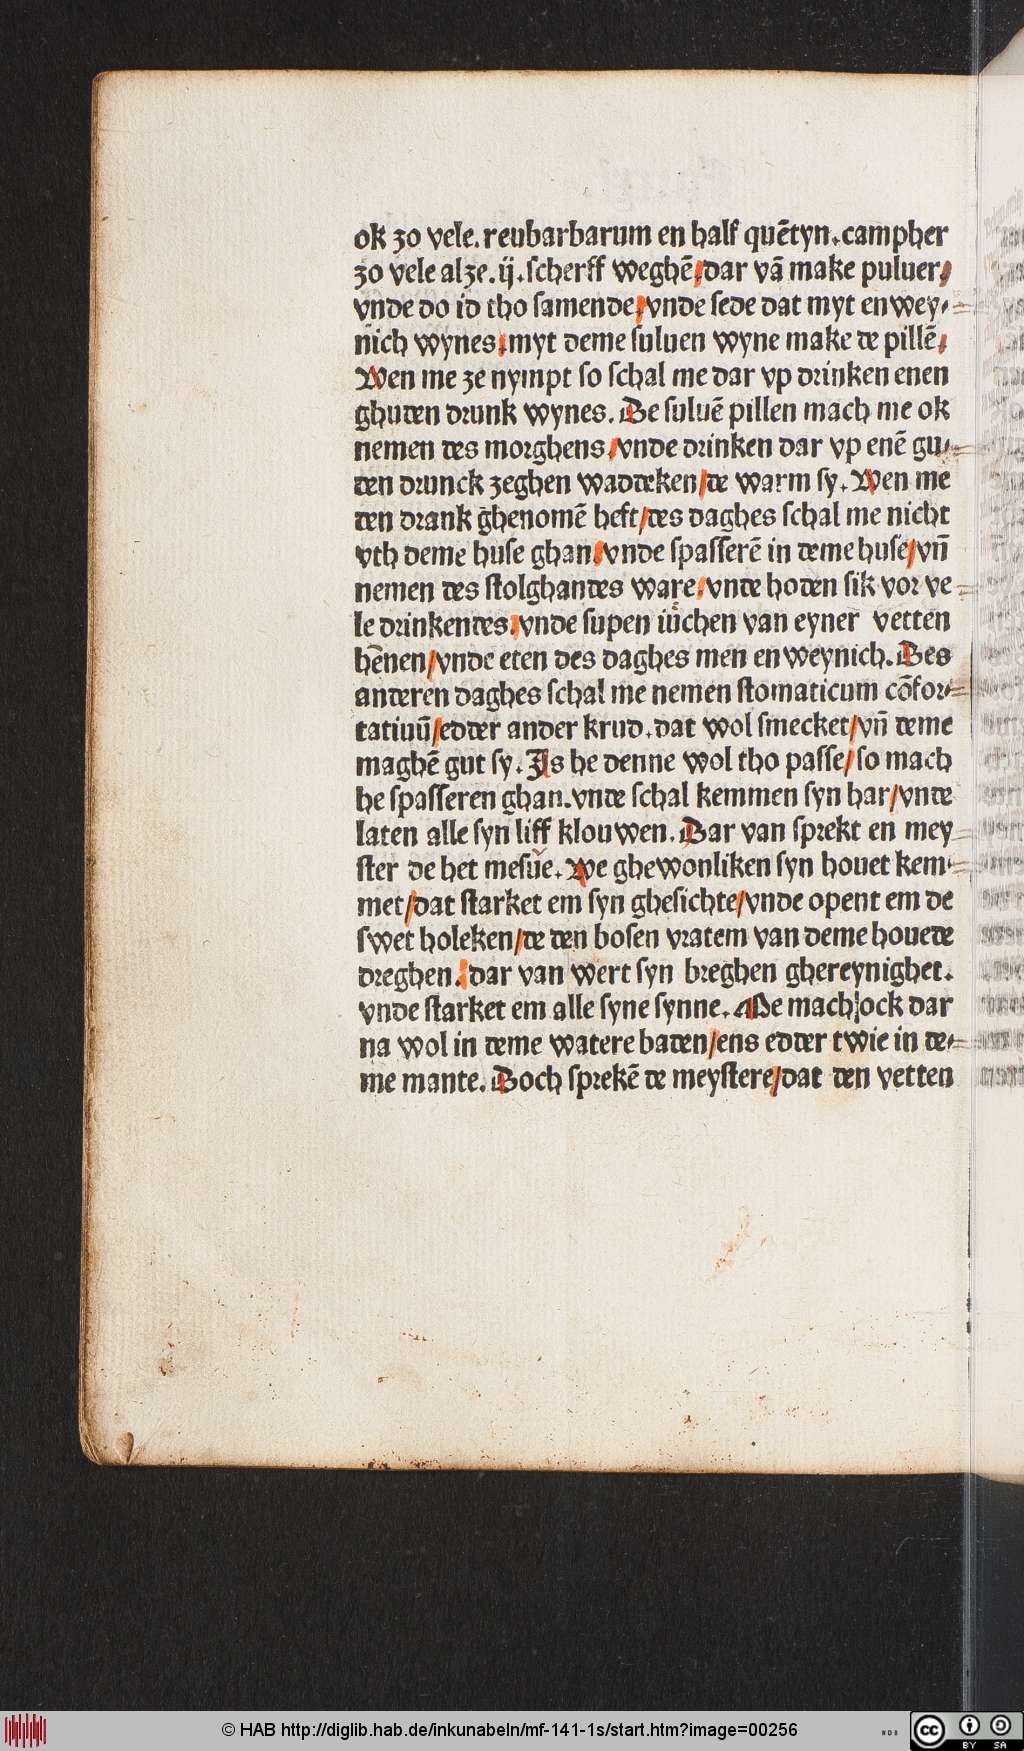 ok zo vele. reubarbarum en half quētyn. campher
zo vele alze. ij. scherff weghē/dar vā make puluer/
vnde do id tho samende/vnde sede dat myt en wey⸗
nich wynes/myt deme suluen wyne make de pillē/
Wen me ze nympt so schal me dar vp drinken enen
ghuden drunk wynes. De suluē pillen mach me ok
nemen des morghens/vnde drinken dar vp enē gu⸗
den drunck zeghen waddeken/de warm sy. Wen me
den drank ghenomē heft/des daghes schal me nicht
vth deme huse ghan/vnde spasserē in deme huse/vn̄
nemen des stolghandes ware/vnde hoden sik vor ve⸗
le drinkendes/vnde supen iůchen van eyner vetten
hēnen/vnde eten des daghes men en weynich. Des
anderen daghes schal me nemen stomaticum cōfor⸗
tatiuū/edder ander krud. dat wol smecket/vn̄ deme
maghē gut sy. Is he denne wol tho passe/so mach
he spasseren ghan. vnde schal kemmen syn har/vnde
laten alle syn liff klouwen. Dar van sprekt en mey⸗
ster de het mesue. We ghewonliken syn houet kem⸗
met/dat starket em syn ghesichte/vnde opent em de
swet holeken/de den bosen vratem van deme houede
dreghen. dar van wert syn breghen ghereynighet.
vnde starket em alle syne synne. Me mach ock dar
na wol in deme watere baden/ens edder twie in de⸗
me mante. Doch sprekē de meystere/dat den vetten
© HAB http://diglib.hab.de/inkunabeln/mf-141-1s/start.htm?image=00256
WDB
cc BY SA